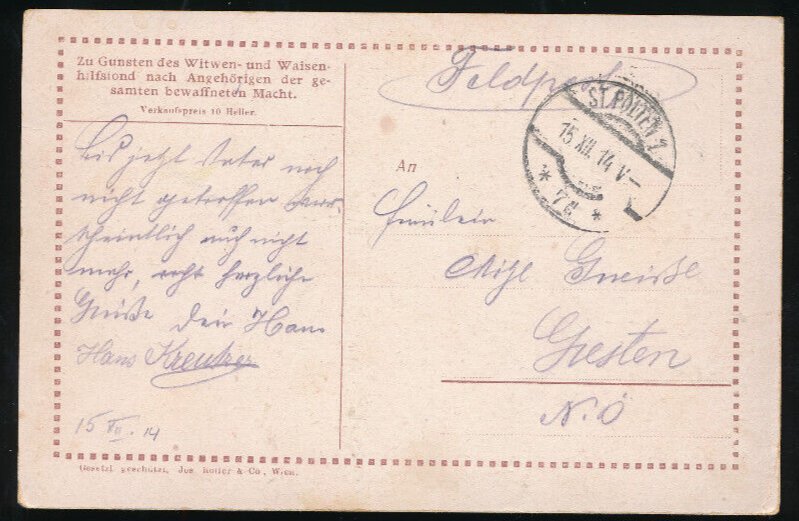 Zu Gunsten des Witwen- und Waisen-
hilfsfond nach Angehörigen der ge-
samten bewaffneten Macht.
Verkaufspreis 10 Heller.
Bis jetzt Vater noch
nicht getroffen wahr-
scheintlich auch nicht
mehr, recht herzliche
Grüße Dein Hans
Hans Kreutzer
15 XII. 14
Feldpost
ST. PÖLTEN 1
15 XII. 14 V-
* 7d *
An
Fräulein
Gneiße
Gresten
N.Ö
Gesetzl. geschützt, Jos. Roller & Co., Wien.